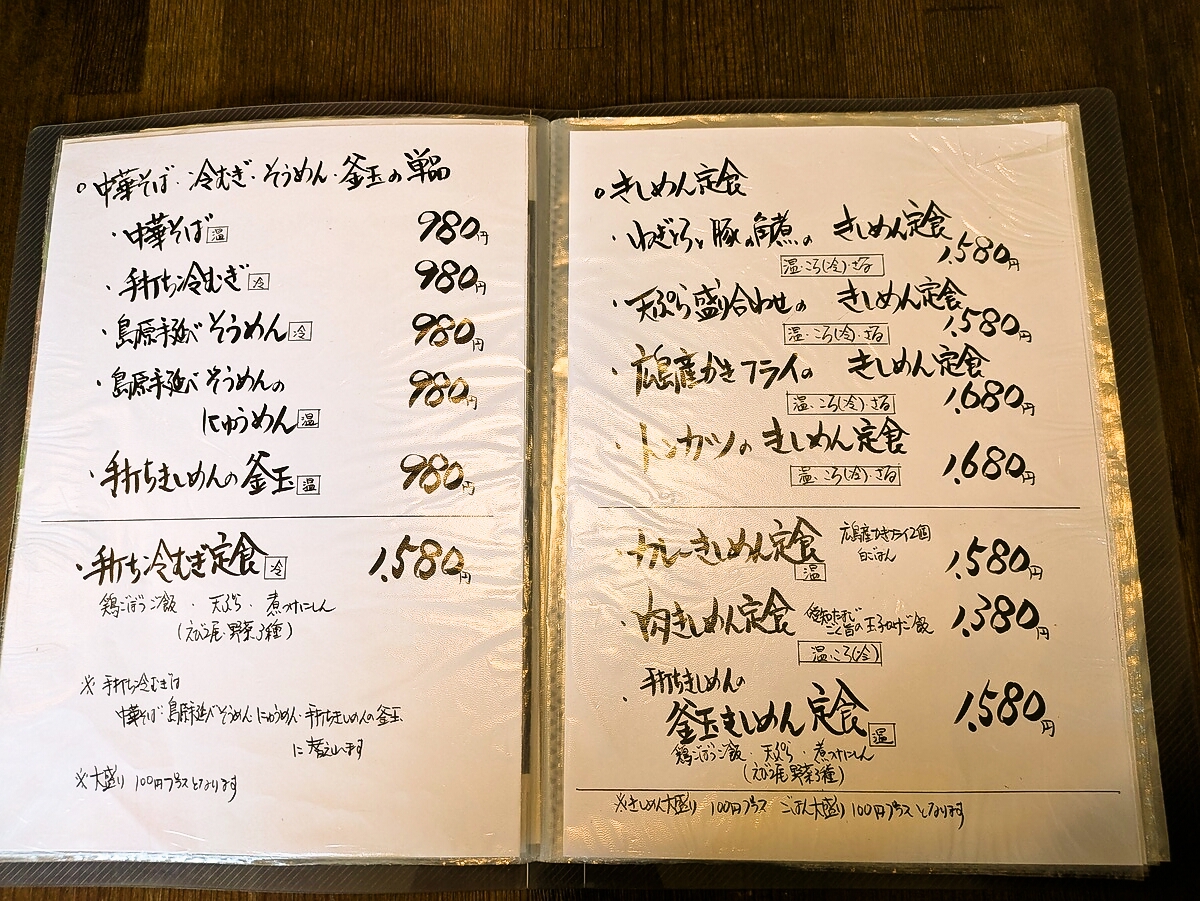 。中華そば・冷むぎ・そうめん・釜玉の単品
・中華そば 温 980円
・手打ち冷むぎ 冷 980円
・島原手延べそうめん 冷 980円
・島原手延べそうめんの 980円
にゅうめん 温
・手打ちきしめんの釜玉 温 980円
・手打ち冷むぎ定食 冷 1,580円
鶏ごぼうご飯・天ぷら・煮つけにしん
(えび2尾・野菜3種)
※手打ち冷むぎは
中華そば・島原手延べそうめん・にゅうめん・手打ちきしめんの釜玉
に替えれます
※大盛り 100円プラスとなります
。きしめん定食
・ねぎとろと豚の角煮の きしめん定食 1,580円
温・ころ(冷)・ざる
・天ぷら盛り合わせの きしめん定食 1,580円
温・ころ(冷)・ざる
・広島産かきフライの きしめん定食 1,680円
温・ころ(冷)・ざる
・トンカツの きしめん定食 1,680円
温・ころ(冷)・ざる
・カレーきしめん定食 温 広島産かきフライ2個 1,580円
白ごはん
・肉きしめん定食 1,380円
ごく旨の玉子かけご飯
温・ころ(冷)
・手打ちきしめんの
釜玉きしめん定食 温 1,580円
鶏ごぼうご飯・天ぷら・煮つけにしん
(えび2尾・野菜3種)
※きしめん大盛り 100円プラス ごはん大盛り 100円プラスとなります